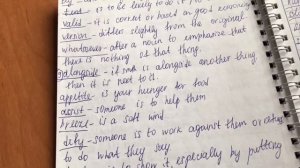 tend - is to be likely to do it
valid - it is correct or based on good reasoning
version - differs slightly from the original
whatsoever - after a noun to emphasize that
there is nothing of that thing.
alongside - if smth is alongside another thing
then it is next to it.
appetite - is your hunger for food
assist - someone is to help them
breeze - is a soft wind
defy - someone is to work against them or
to do what they say
is to show it especially by putting